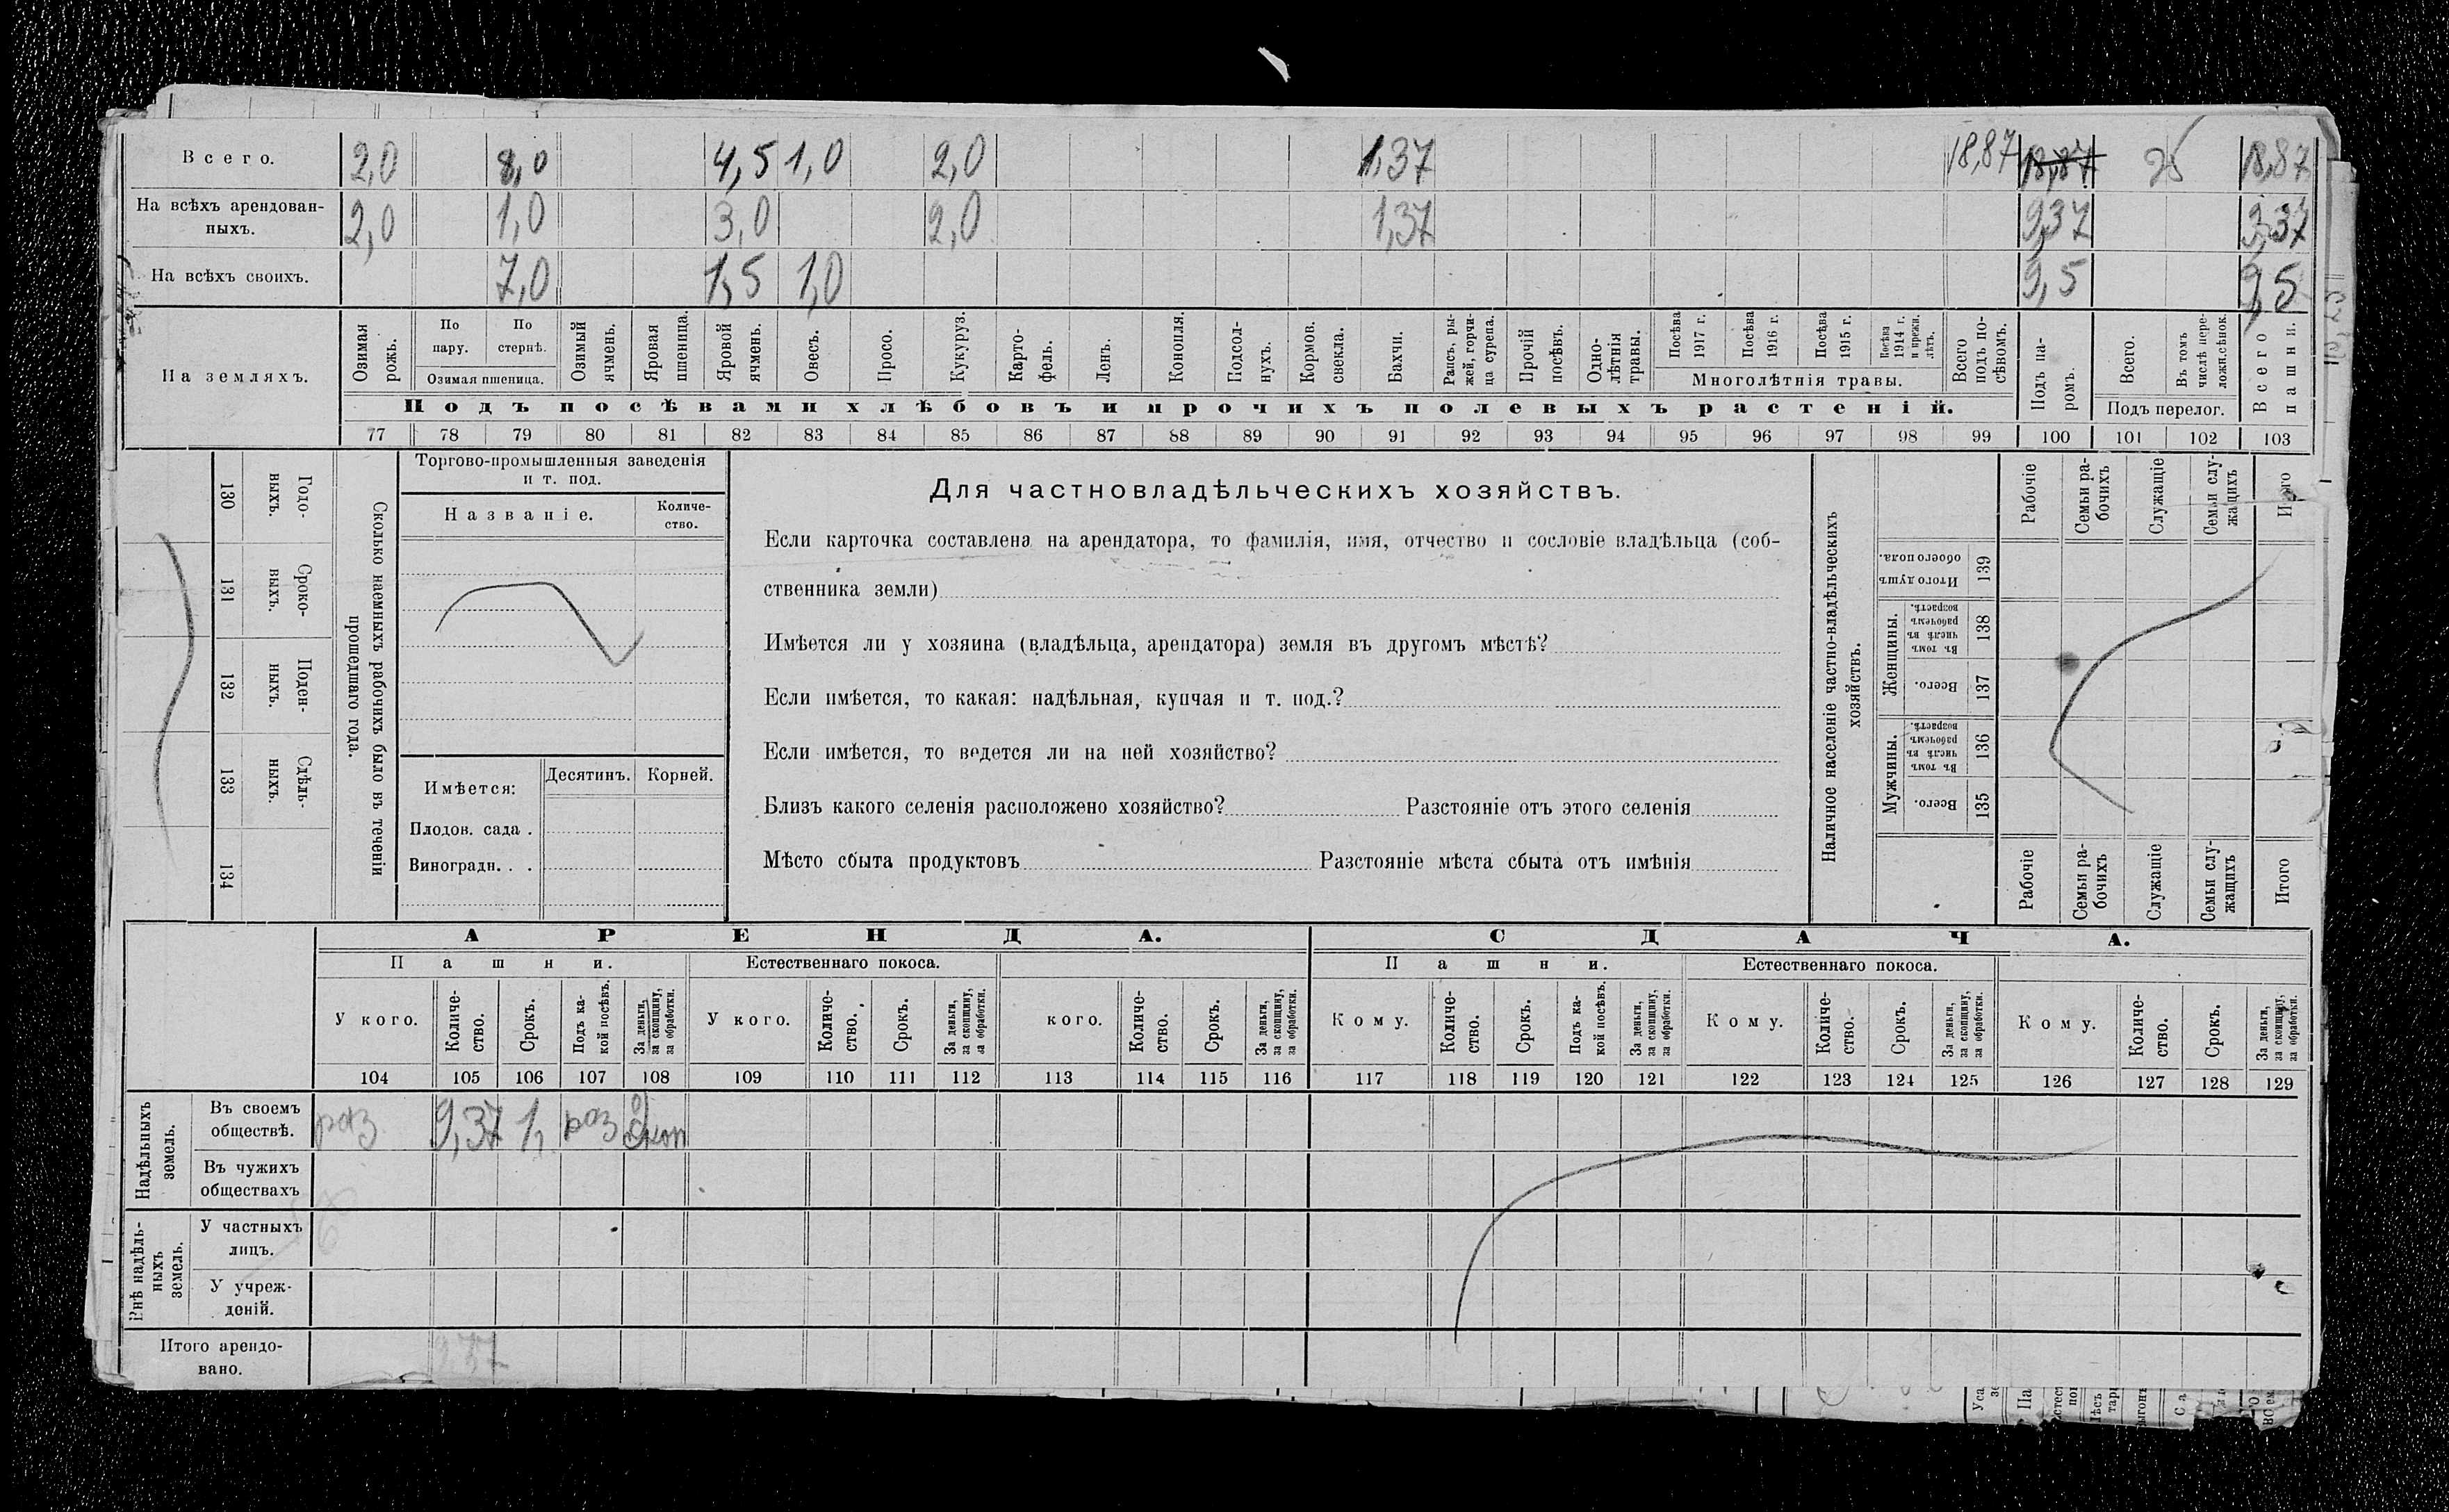 Всего. 2,0 8,0 4,5 1,0 2,0 1,37 18,87 18,87 25 18,87
На всѣхъ арендован-
ныхъ. 2,0 1,0 3,0 2,0 1,37 9,37 9,37
На всѣхъ своихъ. 7,0 1,5 1,0 9,5 9,5
На земляхъ.
Озимая рожь.
По пару.
По стернѣ.
Озимая пшеница.
Озимый ячмень.
Яровая пшеница.
Яровой ячмень.
Овесъ.
Просо.
Кукуруз.
Карто-
фель.
Ленъ.
Конопля.
Подсол-
нухъ.
Кормов. свекла.
Бахчи.
Рапсъ, ры-
жей, горчи-
ца сурепа.
Прочій посѣвъ.
Одно-
лѣтнія травы.
Посѣва 1917 г.
Посѣва 1916 г.
Посѣва 1915 г.
Посѣва 1914 г. и прежн. лѣтъ.
Многолѣтнія травы.
Всего подъ по-
сѣвомъ.
Подъ па-
ромъ.
Всего.
Въ томъ числѣ пере-
ложн.сѣнок.
Подъ перелог.
Всего пашни.
Подъ посѣвами хлѣбовъ и прочихъ полевыхъ растеній.
77 78 79 80 81 82 83 84 85 86 87 88 89 90 91 92 93 94 95 96 97 98 99 100 101 102 103
130 Годо-
выхъ.
131 Сроко-
выхъ.
132 Поден-
ныхъ.
133 Сдѣль-
ныхъ.
134
Сколько наемныхъ рабочихъ было въ теченіи
прошедшаго года.
Торгово-промышленныя заведенія
и т. под.
Названіе.
Количе-
ство.
Имѣется: Десятинъ. Корней.
Плодов. сада .
Виноградн. . .
Для частновладѣльческихъ хозяйствъ.
Если карточка составлена на арендатора, то фамилія, имя, отчество и сословіе владѣльца (соб-
ственника земли)
Имѣется ли у хозяина (владѣльца, арендатора) земля въ другомъ мѣстѣ?
Если имѣется, то какая: надѣльная, купчая и т. под.?
Если имѣется, то ведется ли на ней хозяйство?
Близъ какого селенія расположено хозяйство? Разстояніе отъ этого селенія
Мѣсто сбыта продуктовъ Разстояніе мѣста сбыта отъ имѣнія
Наличное населеніе частно-владѣльческихъ
хозяйствъ.
Рабочіе
Семьи ра-
бочихъ
Служащіе
Семьи слу-
жащихъ
Итого
Итого душъ обоего пола. 139
Женщины.
Въ томъ числѣ въ рабочемъ возрастѣ. 138
Всего. 137
Мужчины.
Въ томъ числѣ въ рабочемъ возрастѣ. 136
Всего. 135
Рабочіе
Семьи ра-
бочихъ
Служащіе
Семьи слу-
жащихъ
Итого
АРЕНДА. СДАЧА.
Пашни. Естественнаго покоса. Пашни. Естественнаго покоса.
У кого.
Количе-
ство.
Срокъ.
Подъ ка-
кой посѣвъ.
За деньги,
за скопщину,
за обработки.
У кого.
Количе-
ство.
Срокъ.
За деньги,
за скопщину,
за обработки.
кого.
Количе-
ство.
Срокъ.
За деньги,
за скопщину,
за обработки.
Кому.
Количе-
ство.
Срокъ.
Подъ ка-
кой посѣвъ.
За деньги,
за скопщину,
за обработки.
Кому.
Количе-
ство.
Срокъ.
За деньги,
за скопщину,
за обработки.
Кому.
Количе-
ство.
Срокъ.
За деньги,
за скопщину,
за обработки.
104 105 106 107 108 109 110 111 112 113 114 115 116 117 118 119 120 121 122 123 124 125 126 127 128 129
Надѣльныхъ
земель.
Въ своемъ
обществѣ. раз 9,37 1 раз скоп
Въ чужихъ
обществахъ
Внѣ надѣль-
ныхъ
земель.
У частныхъ
лицъ.
У учреж-
деній.
Итого арендо-
вано. 9,37